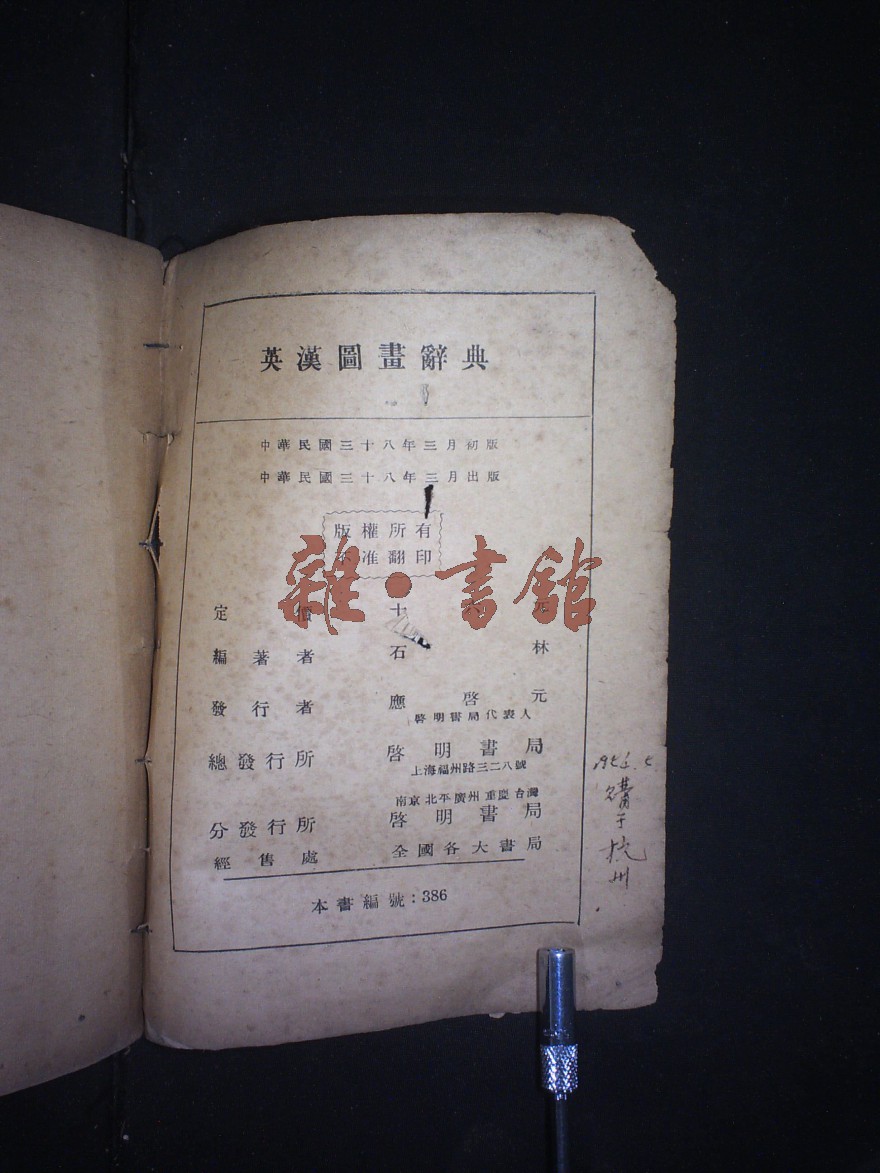 英漢圖畫辭典
中華民國三十八年三月初版
中華民國三十八年三月出版
版權所有
不准翻印
雜·書館
定價 十 元
編著者 石林
發行者 應啓元
啓明書局代表人
總發行所 啓明書局
上海福州路三二八號
南京 北平 廣州 重慶 台灣
分發行所 啓明書局
經售處 全國各大書局
本書編號：386
購于
杭州